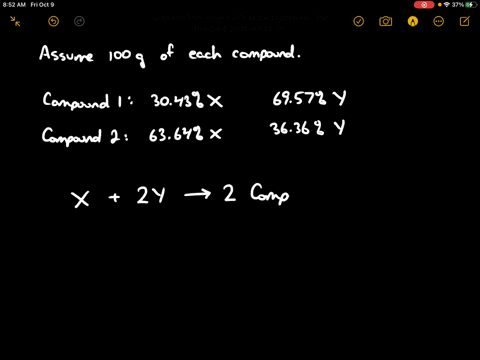 8:52 AM Fri Oct 9
37%
Assume 100 g of each compound.
Compound 1: 30.43% X 69.57% Y
Compound 2: 63.64% X 36.36% Y
X + 2Y → 2 Comp